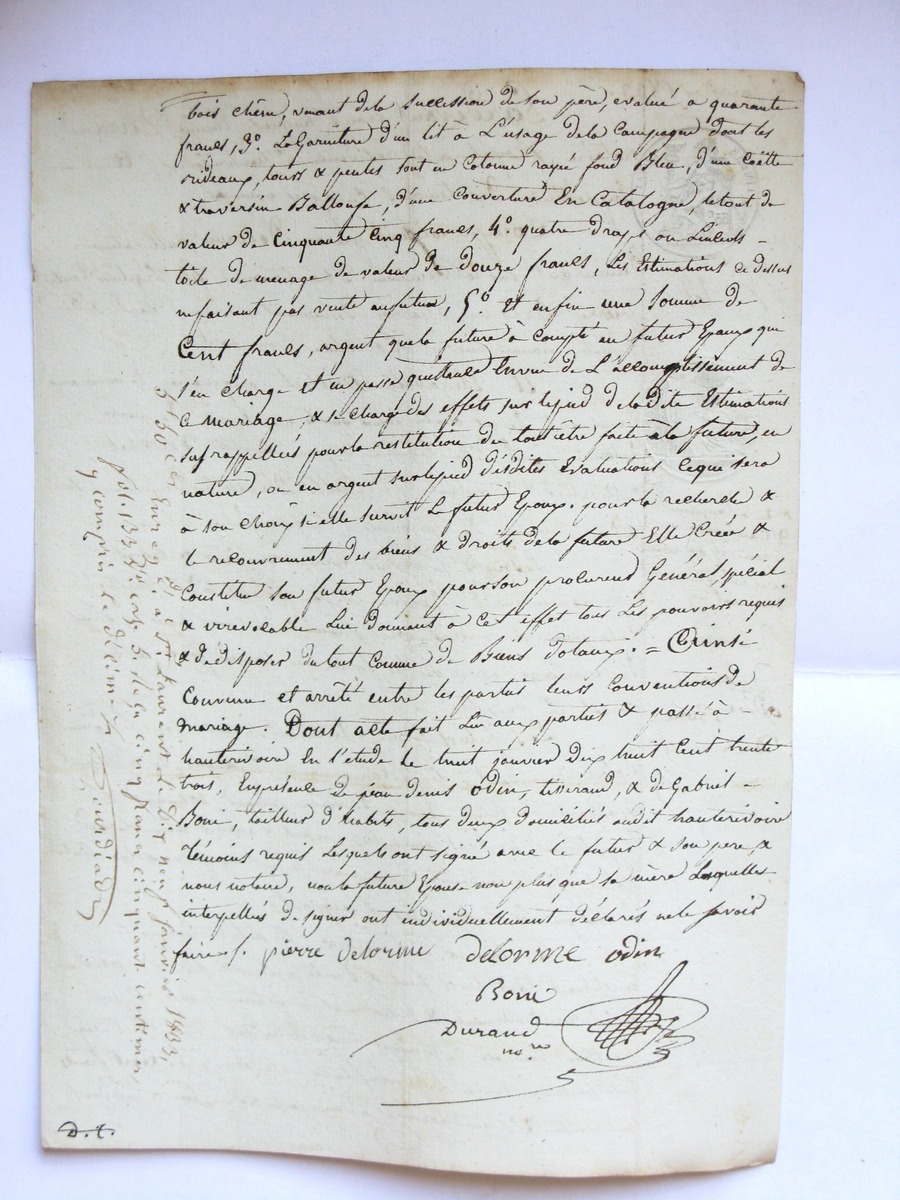 bois chêne, venant dela succession de son père, evalué a quarante
francs, 3.º La Garniture d'un lit à L'usage dela Campagne dont les
rideaux, tours & pentes sont en Cotonne rayée fond Bleu, d'une Coëtte
& traversin Ballouse, d'une Couverture En Catalogne, le tout de
valeur de Cinquante Cinq francs, 4.º quatre draps ou Linceuls
toile de menage de valeur de douze francs, Les Estimations ce dessus
nefaisant pas vente aufutur, 5.º et enfin une Somme de
Cent francs, argent que la future à Compté au futur Epoux qui
s'en charge et en passe quittance Envue de L'accomplissement de
Ce Mariage, & se charge des effets sur lepied de la Dite Estimations
susrappellées pour la restitution du tout être faite à la future, en
nature, ou en argent sur lepied désdites Evaluations Cequi sera
à son choix si elle survit Le futur Epoux. pour la recherche &
le recouvrement des biens & droits dela future Elle Créé &
Constitue son futur Epoux pour son procureur Général, spécial
& irrévocable Lui donnant à Cet effet tous Les pouvoirs requis
& de disposer du tout Comme de Biens dotaux. = Ainsi
Convenu et arrêté entre les parties leurs Conventions de
Mariage. Dont acte fait Lu aux parties & passé à
hauterivoire En l'étude Le huit janvier Dix huit Cent trente
trois, En présence de jean denis Odin, tisserand, & de Gabriel
Boni, tailleur d'habits, tous deux domiciliés audit hauterivoire
témoins requis Lesquels ont signé avec le futur & son pere, &
nous notaire, non la future Epouse non plus que sa mère Lesquelles
interpellées de signer ont individuellement déclarés ne le savoir
faire ./. pierre delorme delorme odin
Boni
Durand
no.re
D. L.
Enreg.é à St. Laurent le Dix neuf Janvier 1833,
fol. 133 R.º C.es 5. Reçu cinq francs cinquante centimes,
y compris le décime